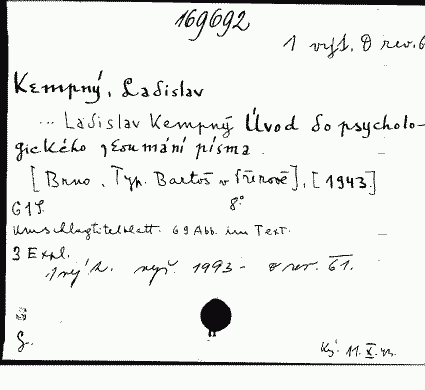 169692
1 výt. 0 rev. 6
Kempný, Ladislav
... Ladislav Kempný Úvod do psycholo-
gického zkoumání písma.
[Brno, Typ. Bartoš v Tišnově], [1943]
61 S. 8°
Umschlagtitelblatt. 69 Abb. im Text.
3 Expl.
1993 - 0 rev. 61.
S.
11. X. 43.